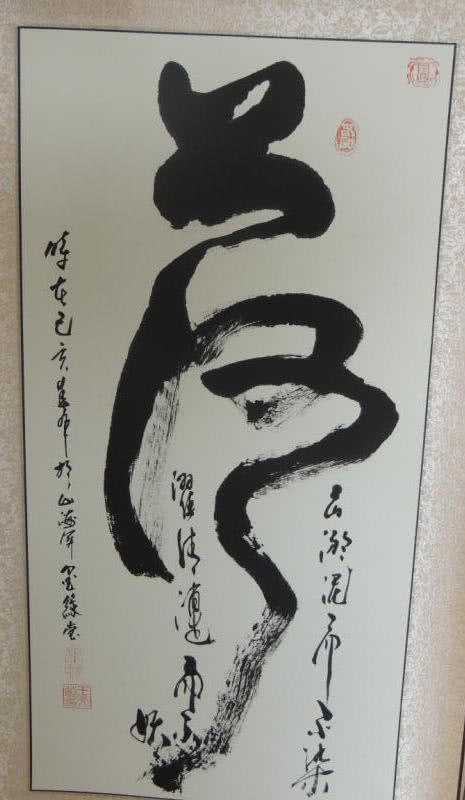 荷
出淤泥而不染
濯清漣而不妖
時在己亥於山海墨緣堂